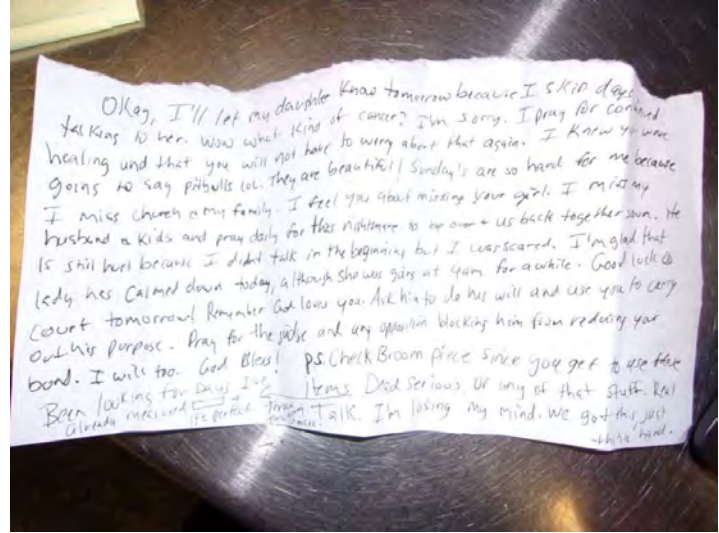 OKay, I'll let my daughter Know tomorrow because I skip days
talking to her. Wow what kind of cancer? I'm sorry. I pray for continued
healing und that you will not have to worry about that again. I Knew you were
going to say pitbulls lol. They are beautiful! Sunday's are so hard for me because
I miss church & my family. I feel you about missing your girl. I miss my
husband & Kids and pray daily for this nightmare to be over & us back together soon. He
Is still hurt because I didnt talk in the beginning but I was scared. I'm glad that
lady has Calmed down today, although she was going at 4am for awhile. Good luck @
court tomorrow! Remember God loves you. Ask him to do his will and use you to carry
out his purpose. Pray for the judge and any opposition blocking him from reducing your
bond. I will too. God Bless! ps. Check Broom piece Since you get to use these
Been looking for Days I've items. Dead Serious. Or any of that stuff. Real
already measured it's perfect. Talk. I'm losing my mind. We got this, just
hard.